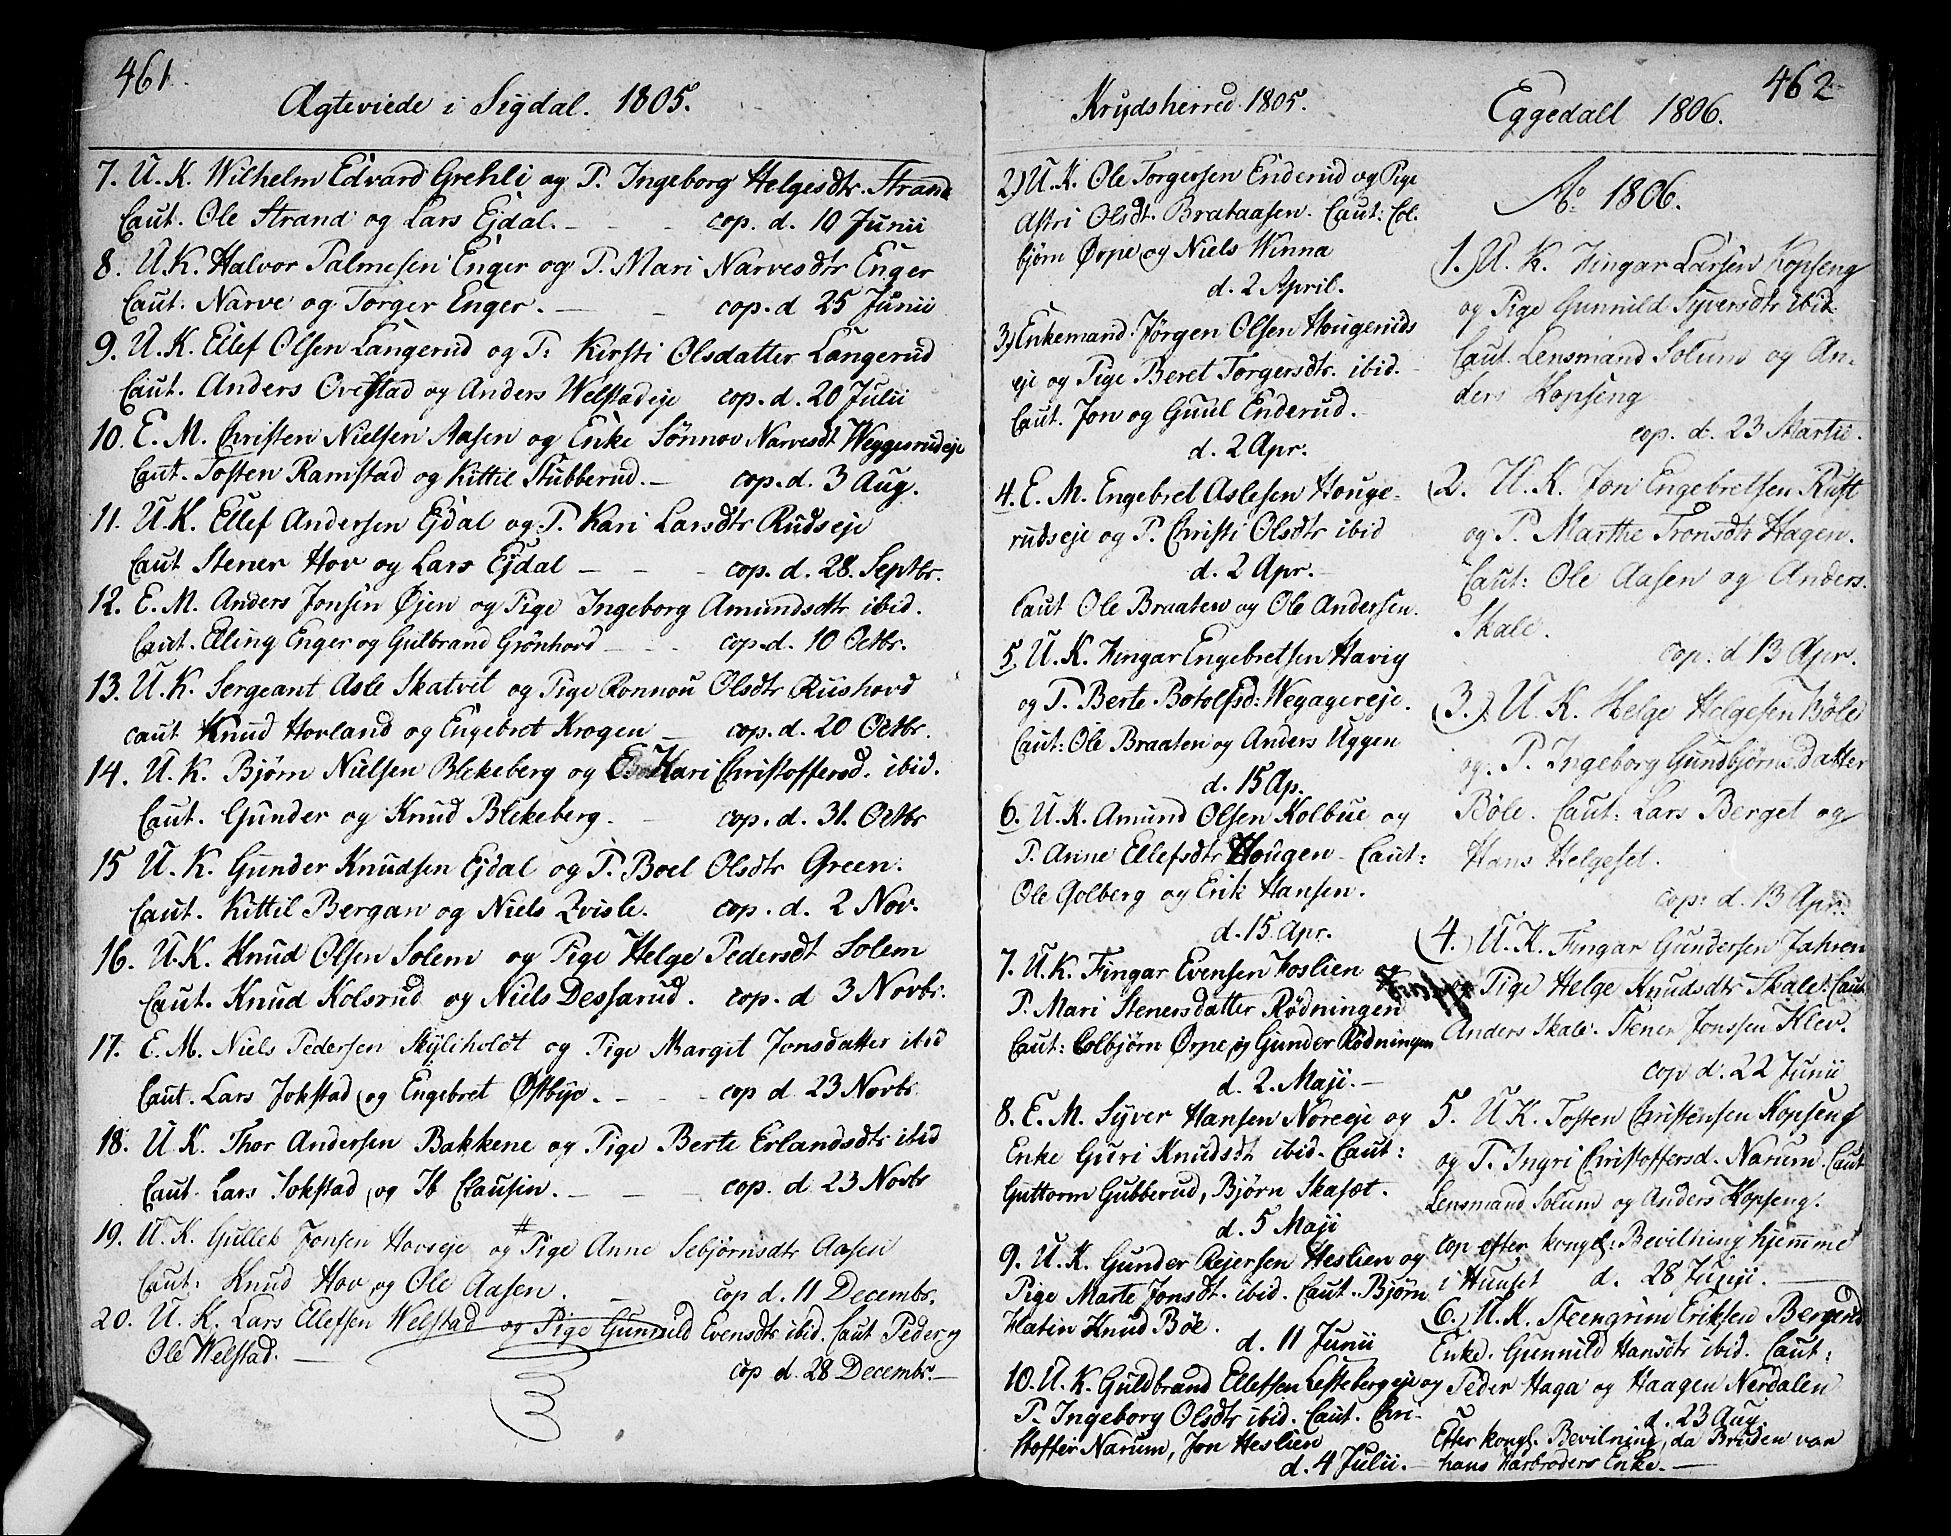 461
Ægteviede i Sigdal. 1805.
7. U. K. Wilhelm Edvard Grehli og P. Ingeborg Helgesdtr. Strand
Caut. Ole Strand og Lars Ejdal. - - - cop. d. 19 Junii
8. U. K. Halvor Palmesen Enger og P. Mari Narvesdtr Enger
Caut. Narve og Torger Enger. - - cop. d 25 Junii
9. U. K. Ellef Olsen Langerud og P: Kirsti Olsdatter Langerud
Caut. Anders Ovestad og Anders Welstadeje cop. d. 20 Julii
10. E. M. Christen Nielsen Aasen og Enke Sönnov Narvesdt Weggesrudeje
Caut. Tosten Ramstad og Kittil Stubberud. - cop. d. 3 Aug.
11. U. K. Ellef Andersen Ejdal og P. Kari Larsdtr Rudseje
Caut Stener Hov og Lars Ejdal - - - cop. d. 28. Septbr.
12. E. M. Anders Jonsen Øjen og Pige Ingeborg Amundsdtr ibid.
Caut. Elling Enger og Gulbrand Grönhovd - - - cop. d. 10 Octbr.
13. U. K. Sergeant Asle Skatvet og Pige Ronnou Olsdtr Riishovd
caut Knud Horland og Engebret Krogen - cop. d. 20 Octbr.
14. U. K. Bjørn Nielsen Blekeberg og E. Kari Christoffersd. ibid.
Caut. Gunder og Knud Blekeberg. - cop. d. 31. Octbr
15 U. K. Gunder Knudsen Ejdal og P. Boel Olsdtr Green.
Caut. Kittil Bergan og Niels Qvisle. cop. d. 2 Nov.
16. U. K. Knud Olsen Solem og Pige Helge Pedersdt Solem
Caut. Knud Kolsrud og Niels Dessarud. cop. d 3 Novbr.
17. E. M. Niels Pedersen Skyliholdt og Pige Margit Jonsdatter ibid
Caut. Lars Jokstad og Engebret Østbye. - - - cop d 23 Novbr.
18. U. K. Thor Andersen Bakkene og Pige Berte Erlandsdtr ibid
Caut. Lars Jokstad og Ib Clausen. - - - cop. d 23 Novbr
19. U. K. Gulleb Jonsen Hovseje og # Pige Anne Sebjørnsdtr Aasen
Caut: Knud Hov og Ole Aasen. - cop d. 11 Decembr.
20. U. K. Lars Ellefsen Welstad og Pige Gunnild Evensdtr ibid. Caut Peder og
Ole Welstad. - cop d. 28 Decembr. -
Krydsherred 1805.
2.) U. K. Ole Torgersen Enderud og Pige
Astri Olsdt. Brataasen. Caut: Col-
bjørn Ørpe og Niels Winna
d. 2 April.
3.) Enkemand Jørgen Olsen Hougerids
eje og Pige Beret Torgersdtr. ibid.
Caut. Jon og Guul Enderud.
d. 2 Apr.
4. E. M. Engebret Aslesen Houge-
rudseje og P. Christi Olsdtr ibid
d. 2 Apr.
Caut Ole Braaten og Ole Andersen.
5. U. K. Fingar Engebretsen Havig
og P. Berte Botolfsd: Wegagereje.
Caut: Ole Braaten og Anders Uggen
d. 15 Ap.
6. U. K. Amund Olsen Kolbue og
P. Anne Ellefsdtr Hougen - Caut:
Ole Golberg og Erik Hansen.
d. 15. Apr.
7. U. K. Fingar Evensen Foslien og
P. Mari Stenersdatter Rødningen
Caut: Colbjørn Ørpe og Gunder Rødningen
d. 2. Maji. -
8. E. M. Syver Hansen Noreeje og
Enke Guri Knudsdt ibid. Caut:
Guttorm Gubberud, Bjørn Skasæt.
d. 5 Maji
9. U. K. Gunder Rejersen Heslien og
Pige Marte Jonsdt. ibid. Caut. Bjørn
Hatin Knud Bøe.
d. 11 Junii
10. U. K. Guldbrand Ellefsen Lesteberg eje og
P. Ingeborg Olsdtr ibid. Caut. Chri-
stoffer Narum, Jon Heslien
d. 4 Julii. -
462
Eggedall 1806.
Ao 1806.
1.) U. K. Fingar Larsen Kopseng
og Pige Gunnild Syversdtr ibid.
Caut. Lensmand Solum og An-
ders Kopseng
cop. d. 23 Martii.
2. U. K. Jon Engebretsen Rust
og P. Marthe Tronsdtr Hagen.
Caut: Ole Aasen og Anders
Skale.
cop. d 13 Apr.
3.) U. K. Helge Helgesen Bøle
og P. Ingeborg Gundbjørnsdatter
Bøle. Caut: Lars Berget og
Hans Helgeset.
cop: d. 13 Apr:
4.) U. K. Fingar Gundersen Jahren
og Pige Helge Knudsdtr Skale. Caut
Anders Skale. Stener Jonssen Klev.
cop d. 22 Junii
5. U. K. Tosten Christensen Kopseng
og P. Ingri Christoffersd. Narum. Caut
Lensmand Solum og Anders Kopseng.
cop efter kongel: Bevilning hjemme
i Huuset d. 28 Junii. -
6.) U. K. Steengrim Eriksen Bergerud
Enke. Gunnild Hansdtr ibid. Caut:
Peder Haga og Haagen Nerdalen
d. 23 Aug.
Efter kongl. Bevilning, da Bruden var
hans Farbroders Enke. -